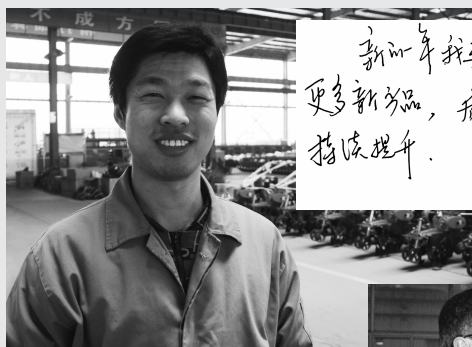 不成方
新的一年我
更多新产品，
持续提升.